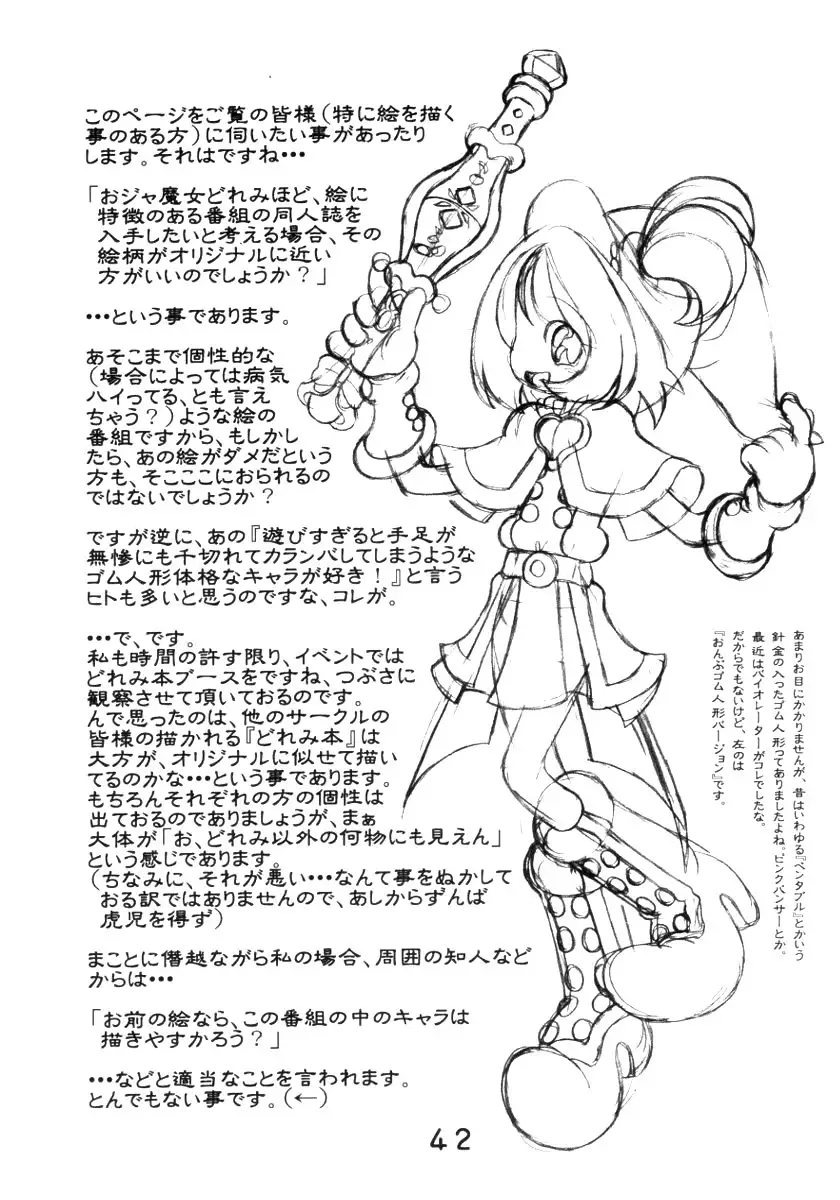 このページをご覧の皆様(特に絵を描く
事のある方)に伺いたい事があったり
します。それはですね・・・
「おジャ魔女どれみほど、絵に
特徴のある番組の同人誌を
入手したいと考える場合、その
絵柄がオリジナルに近い
方がいいのでしょうか?」
・・・という事であります。
あそこまで個性的な
(場合によっては病気
ハイってる、とも言え
ちゃう?)ような絵の
番組ですから、もしかし
たら、あの絵がダメだという
方も、そこここにおられるの
ではないでしょうか?
ですが逆に、あの『遊びすぎると手足が
無惨にも千切れてカランバしてしまうような
ゴム人形体格なキャラが好き!』と言う
ヒトも多いと思うのですな、コレが。
・・・で、です。
私も時間の許す限り、イベントでは
どれみ本ブースをですね、つぶさに
観察させて頂いておるのです。
んで思ったのは、他のサークルの
皆様の描かれる『どれみ本』は
大方が、オリジナルに似せて描い
てるのかな・・・という事であります。
もちろんそれぞれの方の個性は
出ておるのでありましょうが、まぁ
大体が「お、どれみ以外の何物にも見えん」
という感じであります。
(ちなみに、それが悪い・・・なんて事をぬかして
おる訳ではありませんので、あしからずんば
虎児を得ず)
まことに僭越ながら私の場合、周囲の知人など
からは・・・
「お前の絵なら、この番組の中のキャラは
描きやすかろう?」
・・・などと適当なことを言われます。
とんでもない事です。(←)
あまりお目にかかりませんが、昔はいわゆる『ベンダブル』とかいう
針金の入ったゴム人形ってありましたよね。ピンクパンサーとか。
最近はバイオレーターがコレでしたな。
だからでもないけど、左のは
『おんぷゴム人形バージョン』です。
42